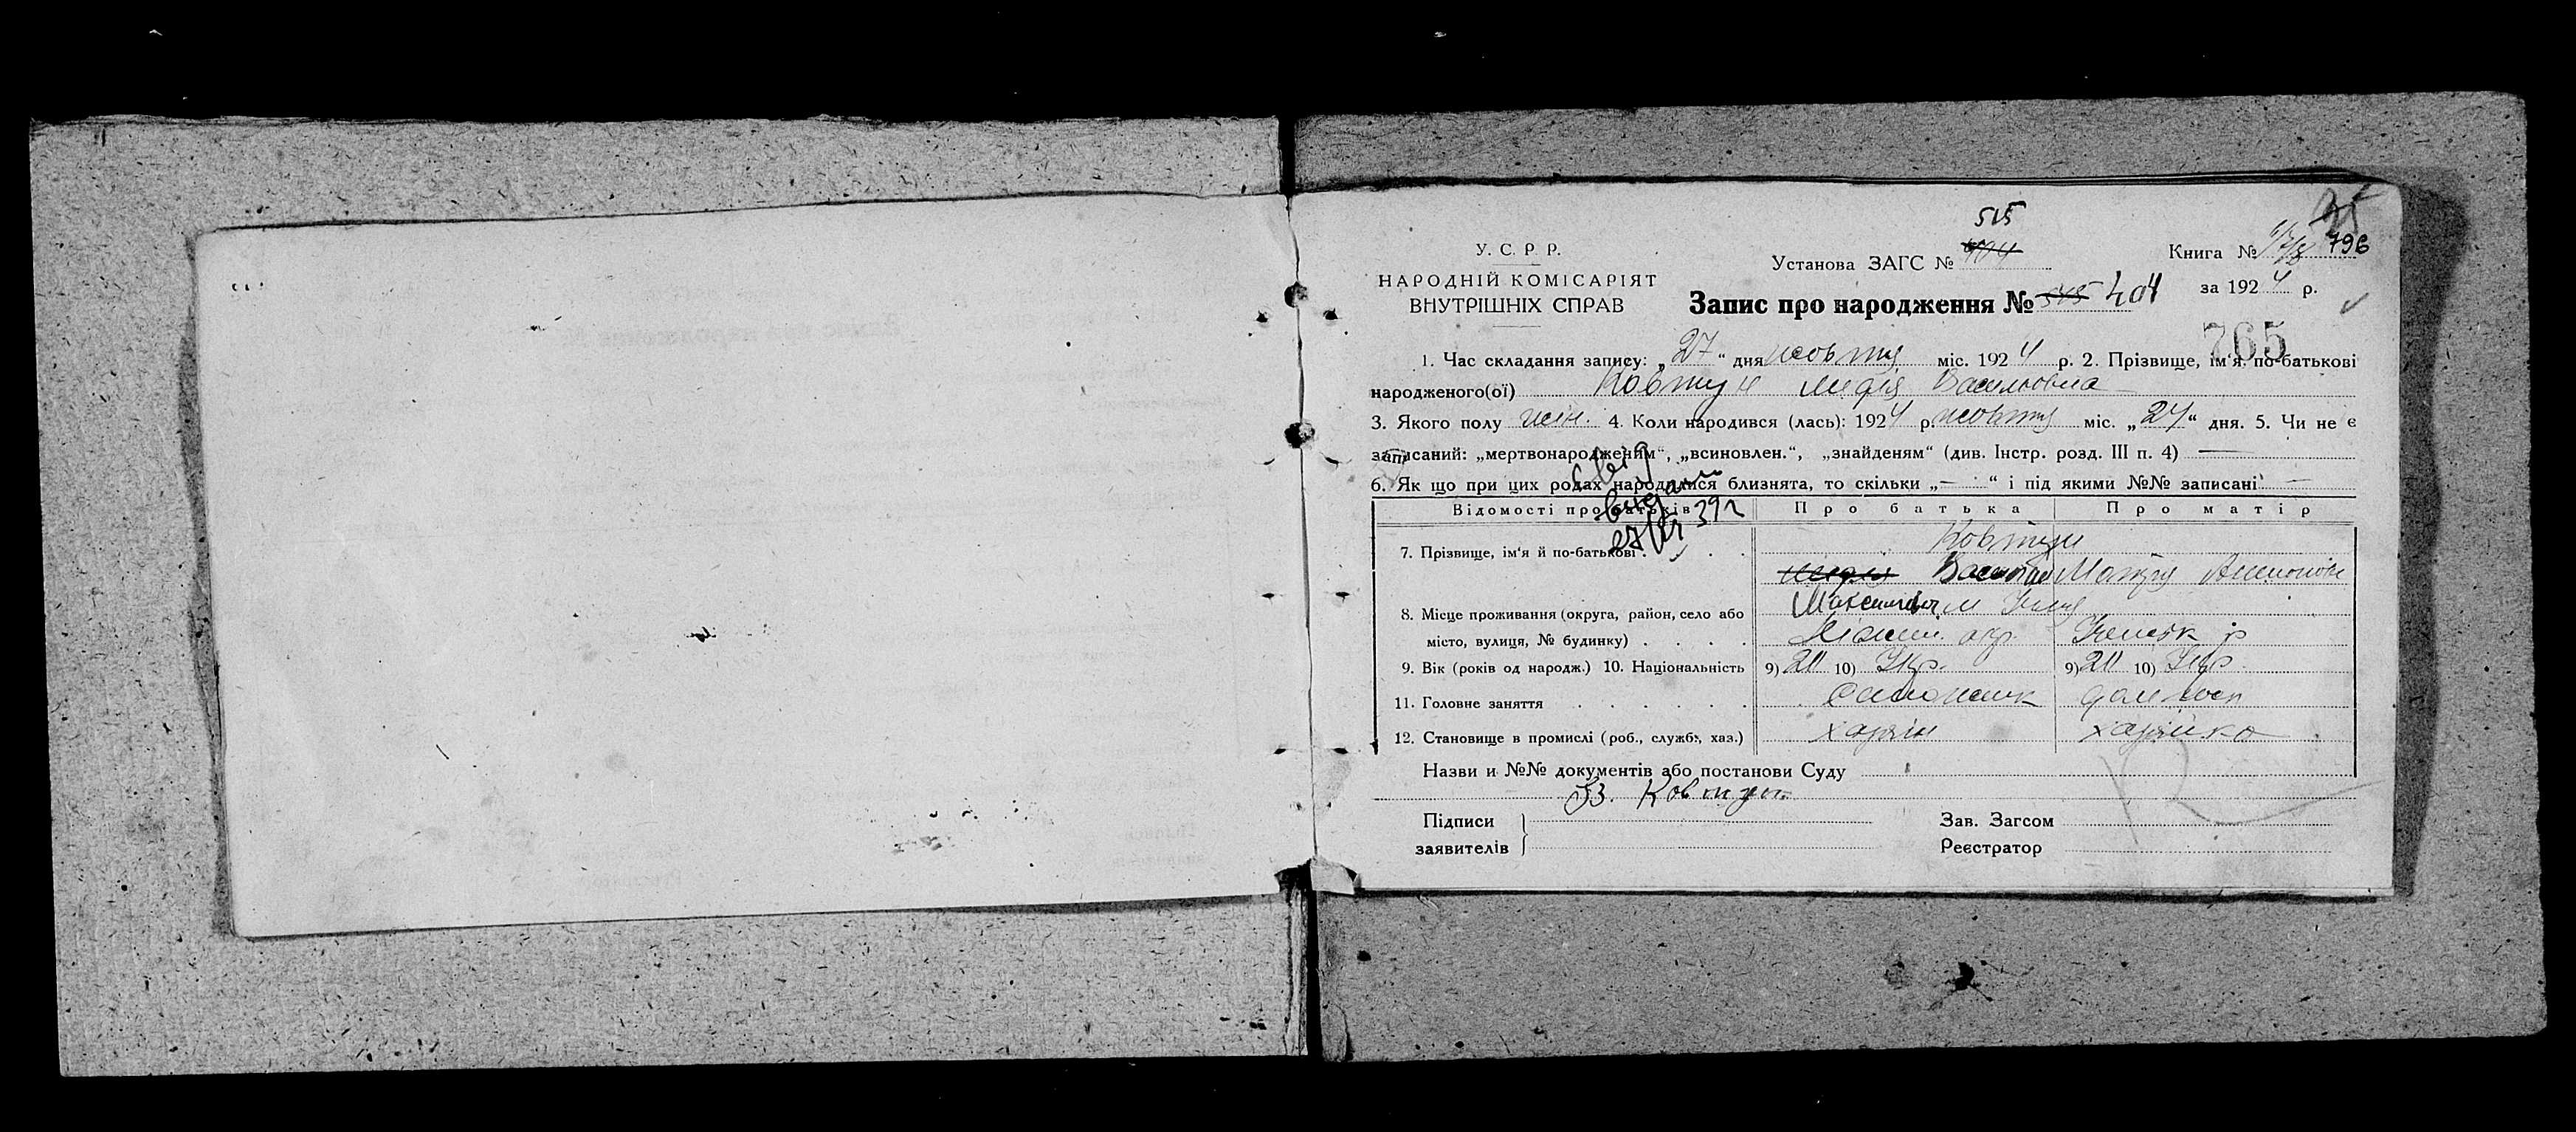 515
У. С. Р. Р.
Установа ЗАГС № 404
Книга № 796
НАРОДНІЙ КОМІСАРІЯТ
ВНУТРІШНІХ СПРАВ
Запис про народження № 515 404
за 1924 р.
765
1. Час складання запису: „27“ дня жовтня міс. 1924 р. 2. Прізвище, ім'я по-батькові
народженого(ої) Ковтун Лидія Васильовна
3. Якого полу жін. 4. Коли народився (лась): 1924 р. жовтня міс. „24“ дня. 5. Чи не є
записаний: „мертвонародженим“, „всиновлен.“, „знайденям“ (див. Інстр. розд. III п. 4) —
6. Як що при цих родах народилися близнята, то скільки „—“ і під якими №№ записані —
Відомості про батьків Про батька Про матір
39 г
7. Прізвище, ім'я й по-батькові Ковтун
Василь
Максимович
8. Місце проживання (округа, район, село або
місто, вулиця, № будинку) окр. р
9. Вік (років од народж.) 10. Національність 9) 20 10) Укр. 9) 20 10) Укр.
11. Головне заняття
12. Становище в промислі (роб., служб., хаз.) хазяїн хазяйка
Назви и №№ документів або постанови Суду
Ковтун
Підписи
заявителів
Зав. Загсом
Реєстратор